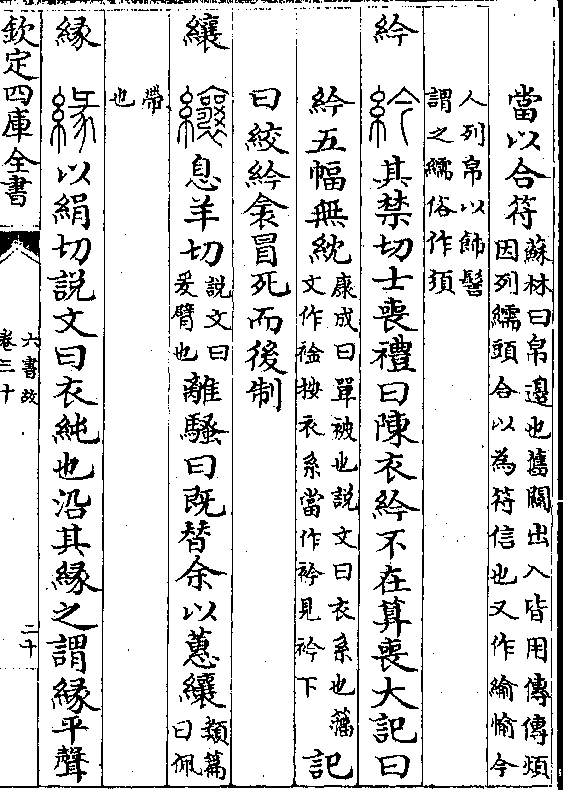 當以合符蘇林曰帛邊也舊關出入皆用傳傳煩因列繻頭合以為符信也又作緰㡏今
人列帛以飾髻謂之繻俗作須
紟其禁切士喪禮曰陳衣紟不在算喪大記曰
紟五幅無紞康成曰單被也説文曰衣系也籒文作䘳按衣系當作衿見衿下記
曰絞紟衾冒死而後制
纕息羊切説文曰爰臂也離騷曰既替余以蕙纕類篇曰佩
帶也
緣以絹切説文曰衣純也沿其緣之謂緣平聲
欽定四庫全書
六書故
卷三十
二十